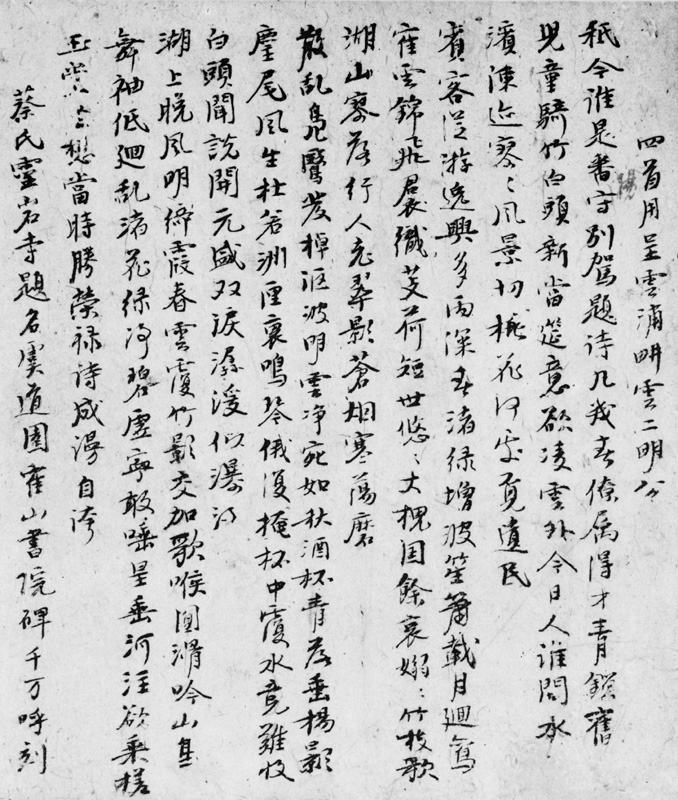 四首用呈雲浦畊雲二明公
秪今誰是番守別駕題詩凡我春僚属得才青鎖舊
兒童騎竹白頭新當筵意欲凌雲外今日人誰問水
濱陳迹寥々風景切桃花何處覓遺民
賓客從游逸興多雨深春渚綠增波笙簫載月廻鳧
雀雲錦飛裊織芰荷短世悠々大槐国餘哀嫋々竹枝歌
湖山寥落行人老翠影蒼烟寒蕩磨
散乱鳧鷖发棹洄波明雲净宛如秋酒杯青落垂楊影
麈尾風生杜若洲匣裏鳴琴俄復掩杯中覆水竟難收
白頭聞說開元盛双淚潺湲似瀑
湖上晚風明綺霞春雲覆竹影交加歌喉圓滑吟山隹
舞袖低廻乱渚花緑净碧虛寧敢唾星垂河注欲乗槎
玉堂想當時勝榮禄詩成漫自誇
蔡氏靈岩寺題名虞道園崔山書院碑千万呼刻